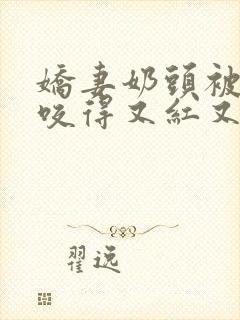 嬌妻奶頭被
咬得又紅又
翟逸